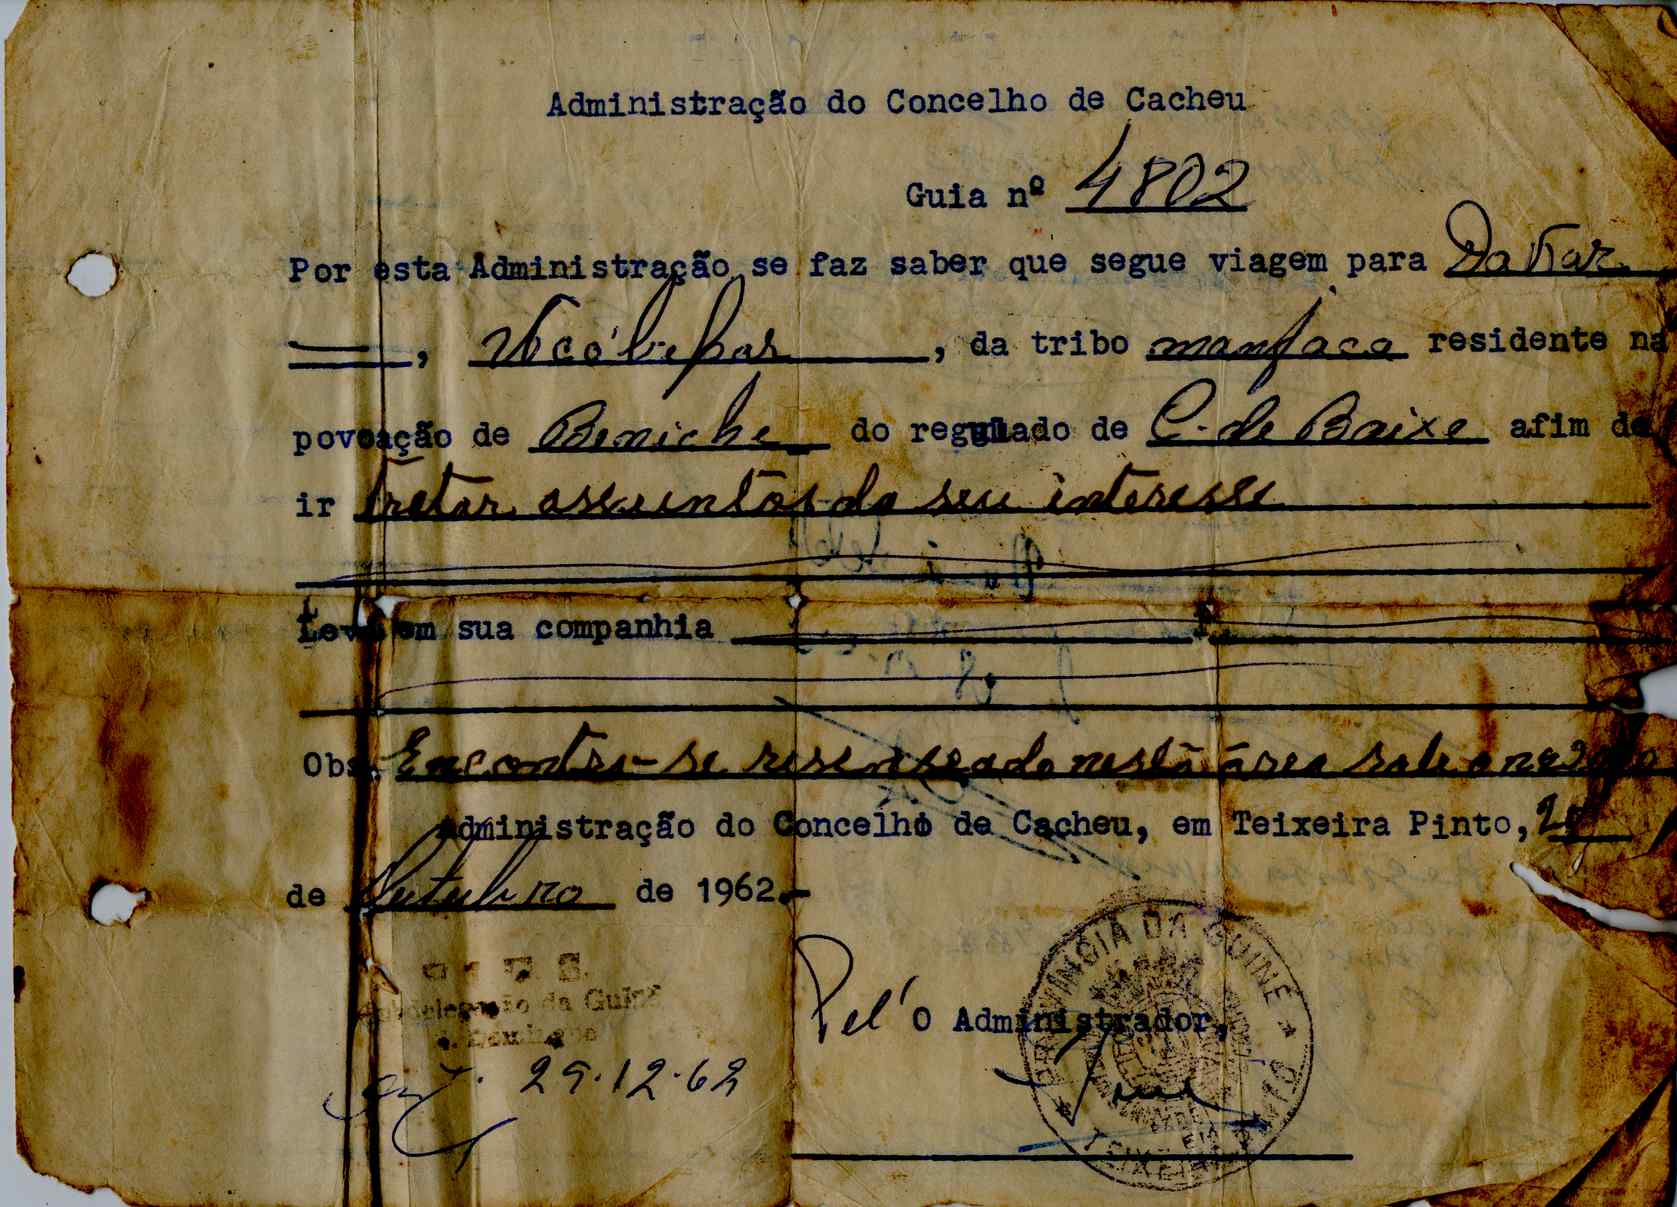 Administração do Concelho de Cacheu
Guia nº 4802
Por esta Administração se faz saber que segue viagem para Dakar
, da tribo manjaca residente na
povoação de Beniche do regulado de C. de Baixe afim de
ir tratar assuntos do seu interesse
Leva em sua companhia
Obs. Encontra-se recenseado nesta área sob o nº
Administração do Concelho de Cacheu, em Teixeira Pinto,
de Outubro de 1962.-
Subdelegação da Guiné
29.12.62
Pel'O Administrador,
PROVINCIA DA GUINÉ
TEIXEIRA PINTO